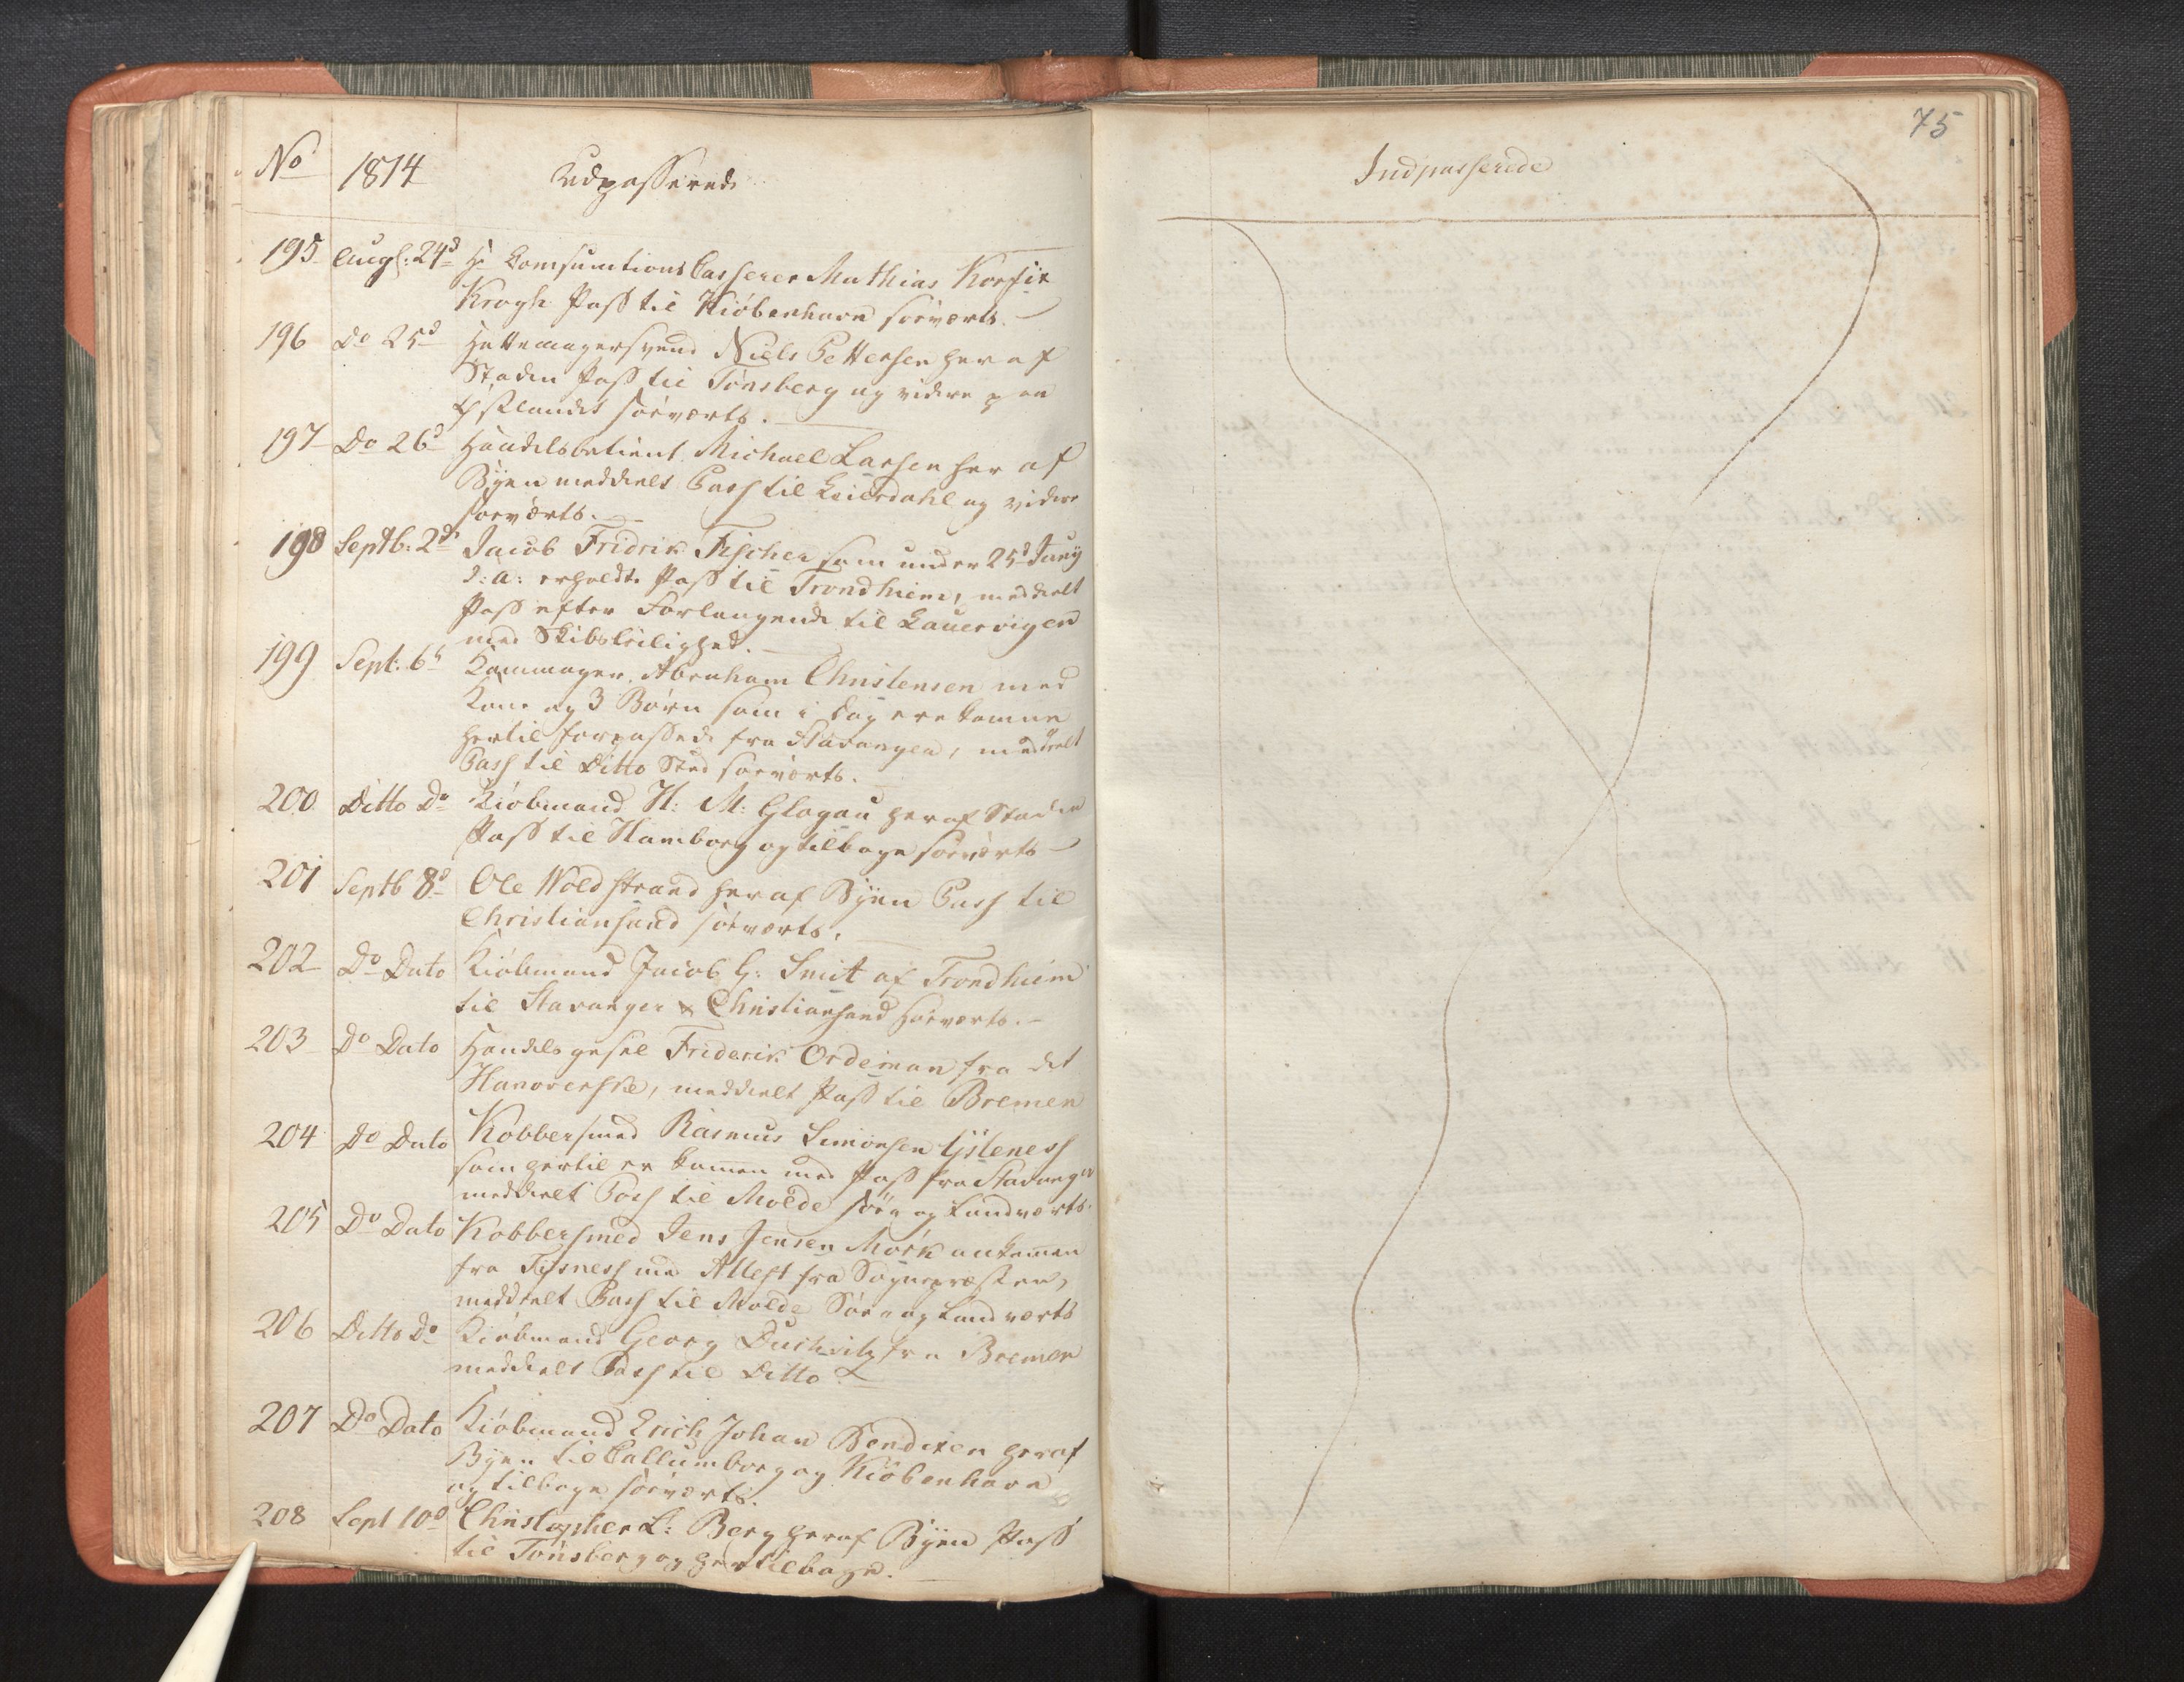 No 1814 Udpasserede
195 Augs: 24d Hr Consumtions Casserer Mathias Korfix
Krogh Pass til Kiöbenhavn söeværts.
196 Do 25d Hattemagersvend Niels Pettersen her af
Staden Pass til Tönsberg og videre paa
Östlandet söeværts.
197 Do 26d Handelsbetient Michael Larsen her af
Byen meddeelt Pass til Leierdahl og videre
söeværts.
198 Septb. 2d Jacob Fridrik Fischer som under 25d Junij
d: a: erholdte Pass til Trondhiem, meddeelt
Pass efter Forlangende til Lauervigen
med Skibsleilighed.
199 Sept. 6t Kammager Abraham Christensen med
Kone og 3 Börn som i Dag ere komne
hertil forpassede fra Stavanger, meddeelt
Pass til Ditto Sted söeværts.
200 Ditto Do Kiöbmand H: M: Glogau her af Staden
Pass til Hamborg og tilbage söeværts
201 Septb 8d Ole Woldstrand her af Byen Pass til
Christiansand söeværts.
202 Do Dato Kiöbmand Jacob G: Smit af Trondhiem
til Stavanger & Christiansand söeværts.
203 Do Dato Handelsgesel Friderik Ordeman fra det
Hanoverske, meddeelt Pass til Bremen
204 Do Dato Kobbersmed Rasmus Simonsen
som hertil er kommen med Pass fra Stavanger
meddeelt Pass til Molde söe og Landværts.
205 Do Dato Kobbersmed Jens Jensen Mörk ankommen
fra Tysness med Attest fra Sognepræsten,
meddeelt Pass til Molde Söe og Landværts
206 Ditto Do Kiöbmand Georg Duchvitz fra Bremen
meddeelt Pass til Ditto
207 Do Dato Kiöbmand Erich Johan Bendixen her af
Byen til Callumborg og Kiöbenhavn
og tilbage söeværts.
208 Sept 10d Christopher L: Berg her af Byen Pass
til Tönsberg og her tilbage.
75
Indpasserede